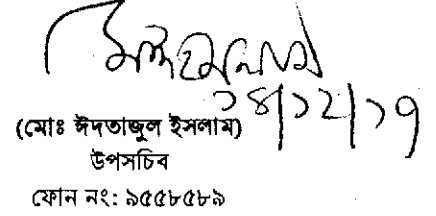 ১৪/১২/১৭
(মোঃ ঈদতাজুল ইসলাম)
উপসচিব
ফোন নং: ৯৫৫৮৫৮৯